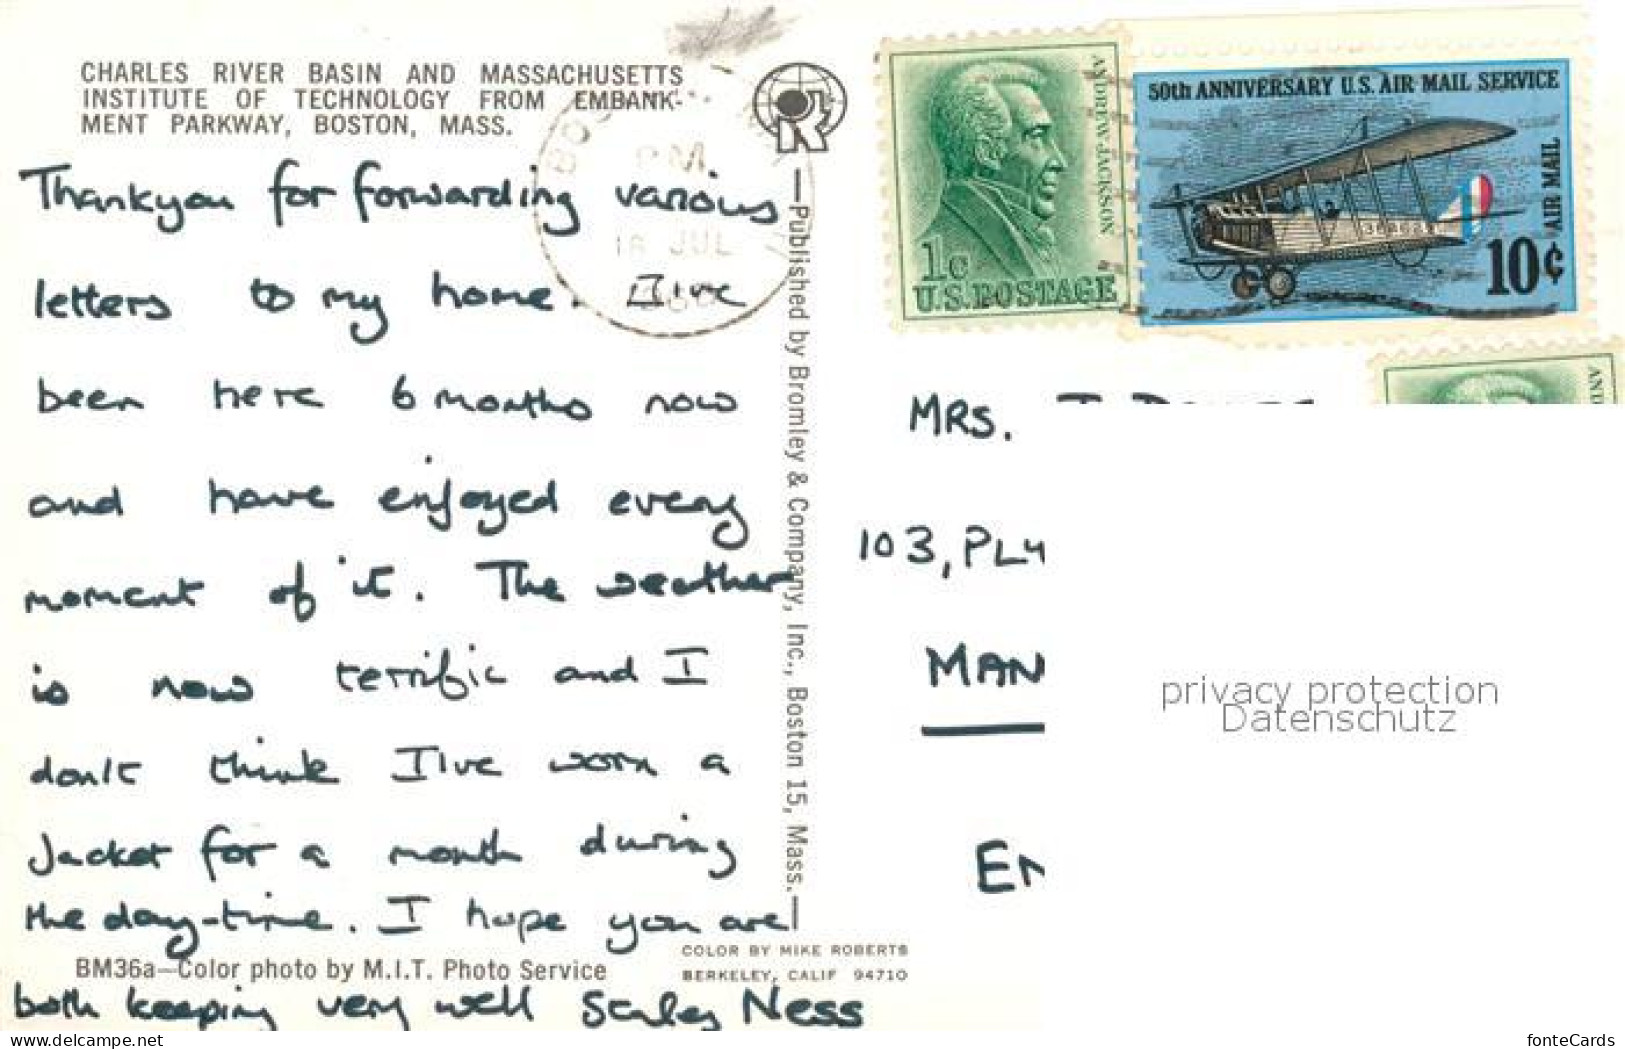 CHARLES RIVER BASIN AND MASSACHUSETTS
INSTITUTE OF TECHNOLOGY FROM EMBANK-
MENT PARKWAY, BOSTON, MASS.
Thankyou for forwarding various
letters to my home. I've
been here 6 months now
and have enjoyed every
moment of it. The weather
is now terrific and I
don't think I've worn a
Jacket for a month during
the day-time. I hope you are
both keeping very well Ness
BM36a—Color photo by M.I.T. Photo Service
COLOR BY MIKE ROBERTS
BERKELEY, CALIF 94710
—Published by Bromley & Company, Inc., Boston 15, Mass.—
BOS
P.M.
JUL
ANDREW JACKSON
1c
U.S. POSTAGE
50th ANNIVERSARY U.S. AIR MAIL SERVICE
AIR MAIL
10¢
AND
MRS.
103, PLY
MAN
EN
privacy protection
Datenschutz
www.delcampe.net
fonteCards